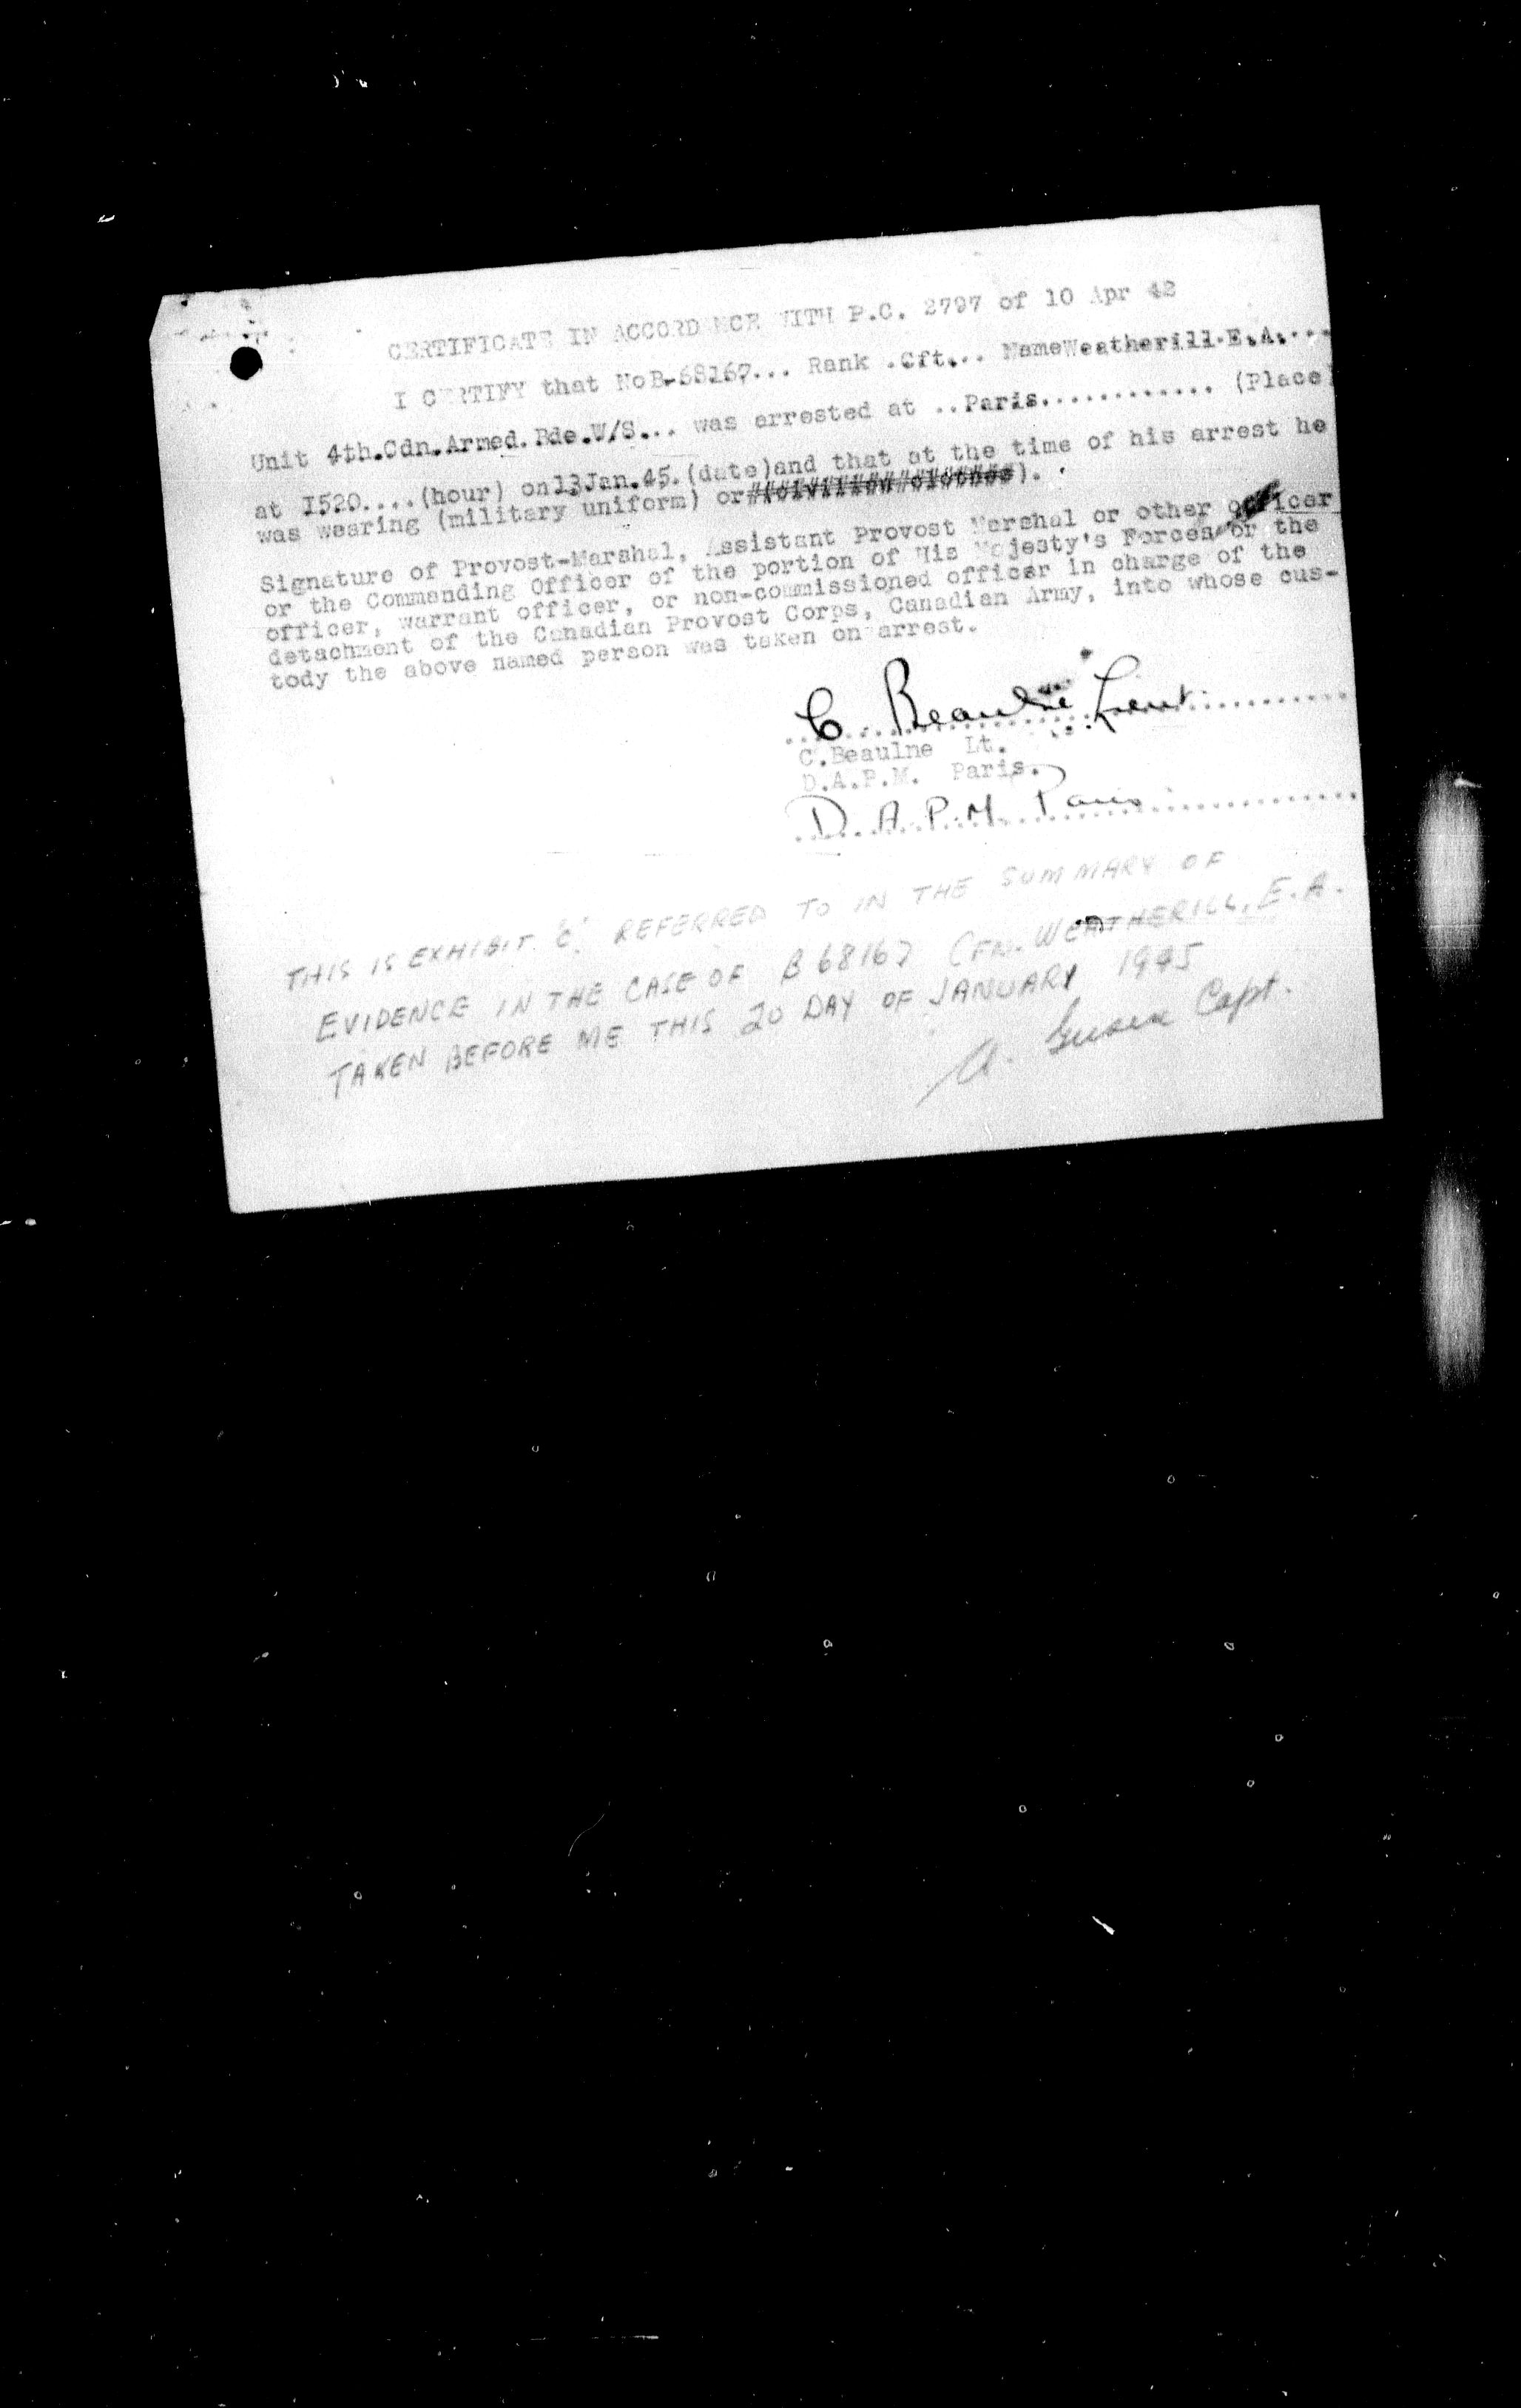 CERTIFICATE IN ACCORDANCE WITH P.C. 2797 of 10 Apr 42
I CERTIFY that No B-68167... Rank .Cft... Name Weatherill.E.A....
Unit 4th.Cdn.Armed.Bde.W/S... was arrested at ..Paris............. (Place)
at I520....(hour) on 13 Jan.45.(date)and that at the time of his arrest he
was wearing (military uniform) or (civilian clothes).
Signature of Provost-Marshal, Assistant Provost Marshal or other officer
or the Commanding Officer of the portion of His Majesty's Forces or the
officer, warrant officer, or non-commissioned officer in charge of the
detachment of the Canadian Provost Corps, Canadian Army, into whose cus-
tody the above named person was taken on arrest.
C. Beaulne Lieut.
C.Beaulne Lt.
D.A.P.M. Paris.
D.A.P.M. Paris
THIS IS EXHIBIT "C" REFERRED TO IN THE SUMMARY OF
EVIDENCE IN THE CASE OF B 68167 CFN. WEATHERILL, E.A.
TAKEN BEFORE ME THIS 20 DAY OF JANUARY 1945
A. Capt.